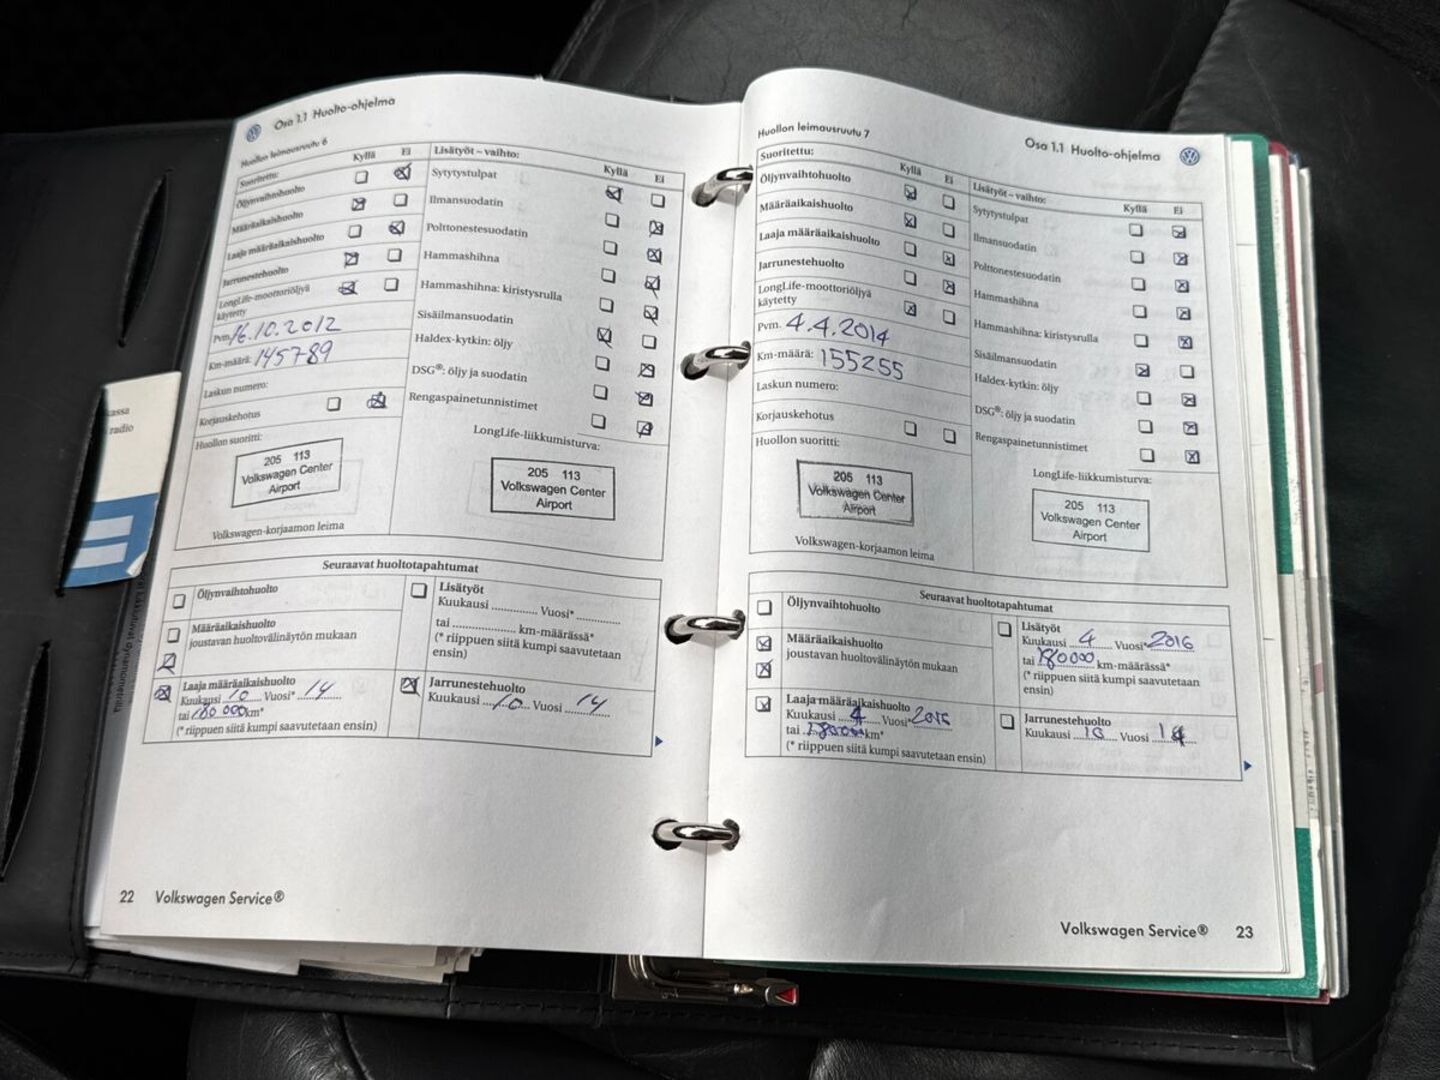 Osa 1.1 Huolto-ohjelma
Huollon leimausruutu 6
Suoritettu:
Kyllä Ei
Öljynvaihtohuolto
Määräaikaishuolto
Laaja määräaikaishuolto
Jarrunestehuolto
LongLife-moottoriöljyä
käytetty
Pvm. 16.10.2012
Km-määrä: 145789
Laskun numero:
Korjauskehotus
Huollon suoritti:
205 113
Volkswagen Center
Airport
Volkswagen-korjaamon leima
Lisätyöt – vaihto:
Kyllä Ei
Sytytystulpat
Ilmansuodatin
Polttonestesuodatin
Hammashihna
Hammashihna: kiristysrulla
Sisäilmansuodatin
Haldex-kytkin: öljy
DSG®: öljy ja suodatin
Rengaspainetunnistimet
LongLife-liikkumisturva:
205 113
Volkswagen Center
Airport
Seuraavat huoltotapahtumat
Öljynvaihtohuolto
Määräaikaishuolto
joustavan huoltovälinäytön mukaan
Laaja määräaikaishuolto
Kuukausi 10 Vuosi* 14
tai 180 000 km*
(* riippuen siitä kumpi saavutetaan ensin)
Lisätyöt
Kuukausi .............. Vuosi* ..............
tai .................... km-määrässä*
(* riippuen siitä kumpi saavutetaan
ensin)
Jarrunestehuolto
Kuukausi 10 Vuosi 14
22 Volkswagen Service®
Huollon leimausruutu 7
Osa 1.1 Huolto-ohjelma
Suoritettu:
Kyllä Ei
Öljynvaihtohuolto
Määräaikaishuolto
Laaja määräaikaishuolto
Jarrunestehuolto
LongLife-moottoriöljyä
käytetty
Pvm. 4.4.2014
Km-määrä: 155255
Laskun numero:
Korjauskehotus
Huollon suoritti:
205 113
Volkswagen Center
Airport
Volkswagen-korjaamon leima
Lisätyöt – vaihto:
Kyllä Ei
Sytytystulpat
Ilmansuodatin
Polttonestesuodatin
Hammashihna
Hammashihna: kiristysrulla
Sisäilmansuodatin
Haldex-kytkin: öljy
DSG®: öljy ja suodatin
Rengaspainetunnistimet
LongLife-liikkumisturva:
205 113
Volkswagen Center
Airport
Seuraavat huoltotapahtumat
Öljynvaihtohuolto
Määräaikaishuolto
joustavan huoltovälinäytön mukaan
Laaja määräaikaishuolto
Kuukausi 4 Vuosi*
tai km*
(* riippuen siitä kumpi saavutetaan ensin)
Lisätyöt
Kuukausi 4 Vuosi* 2016
tai 180000 km-määrässä*
(* riippuen siitä kumpi saavutetaan
ensin)
Jarrunestehuolto
Kuukausi 10 Vuosi
Volkswagen Service® 23
radio